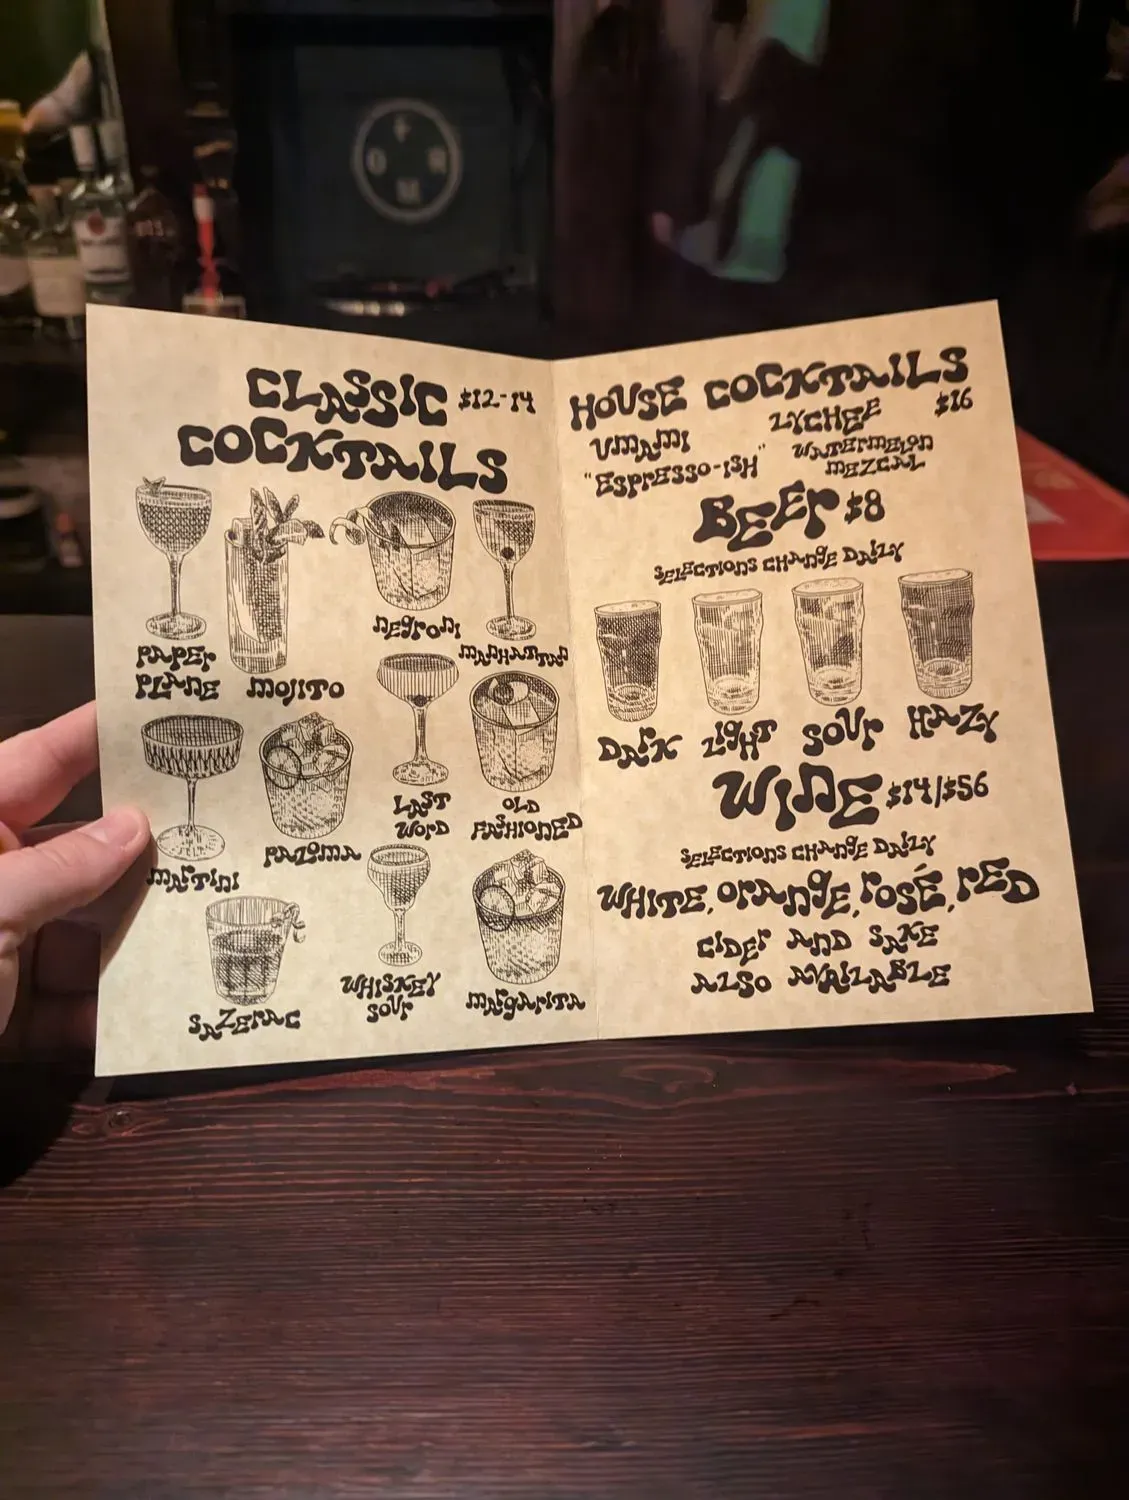 F
O R
M
CLASSIC $12-14
COCKTAILS
PAPER
PLANE
MOJITO
NEGRONI
MANHATTAN
MARTINI
PALOMA
LAST
WORD
OLD
FASHIONED
SAZERAC
WHISKEY
SOUR
MARGARITA
HOUSE COCKTAILS
$16
UMAMI
LYCHEE
"ESPRESSO-ISH"
WATERMELON
MEZCAL
BEER $8
SELECTIONS CHANGE DAILY
DARK
LIGHT
SOUR
HAZY
WINE $14/$56
SELECTIONS CHANGE DAILY
WHITE, ORANGE, ROSÉ, RED
CIDER AND SAKE
ALSO AVAILABLE